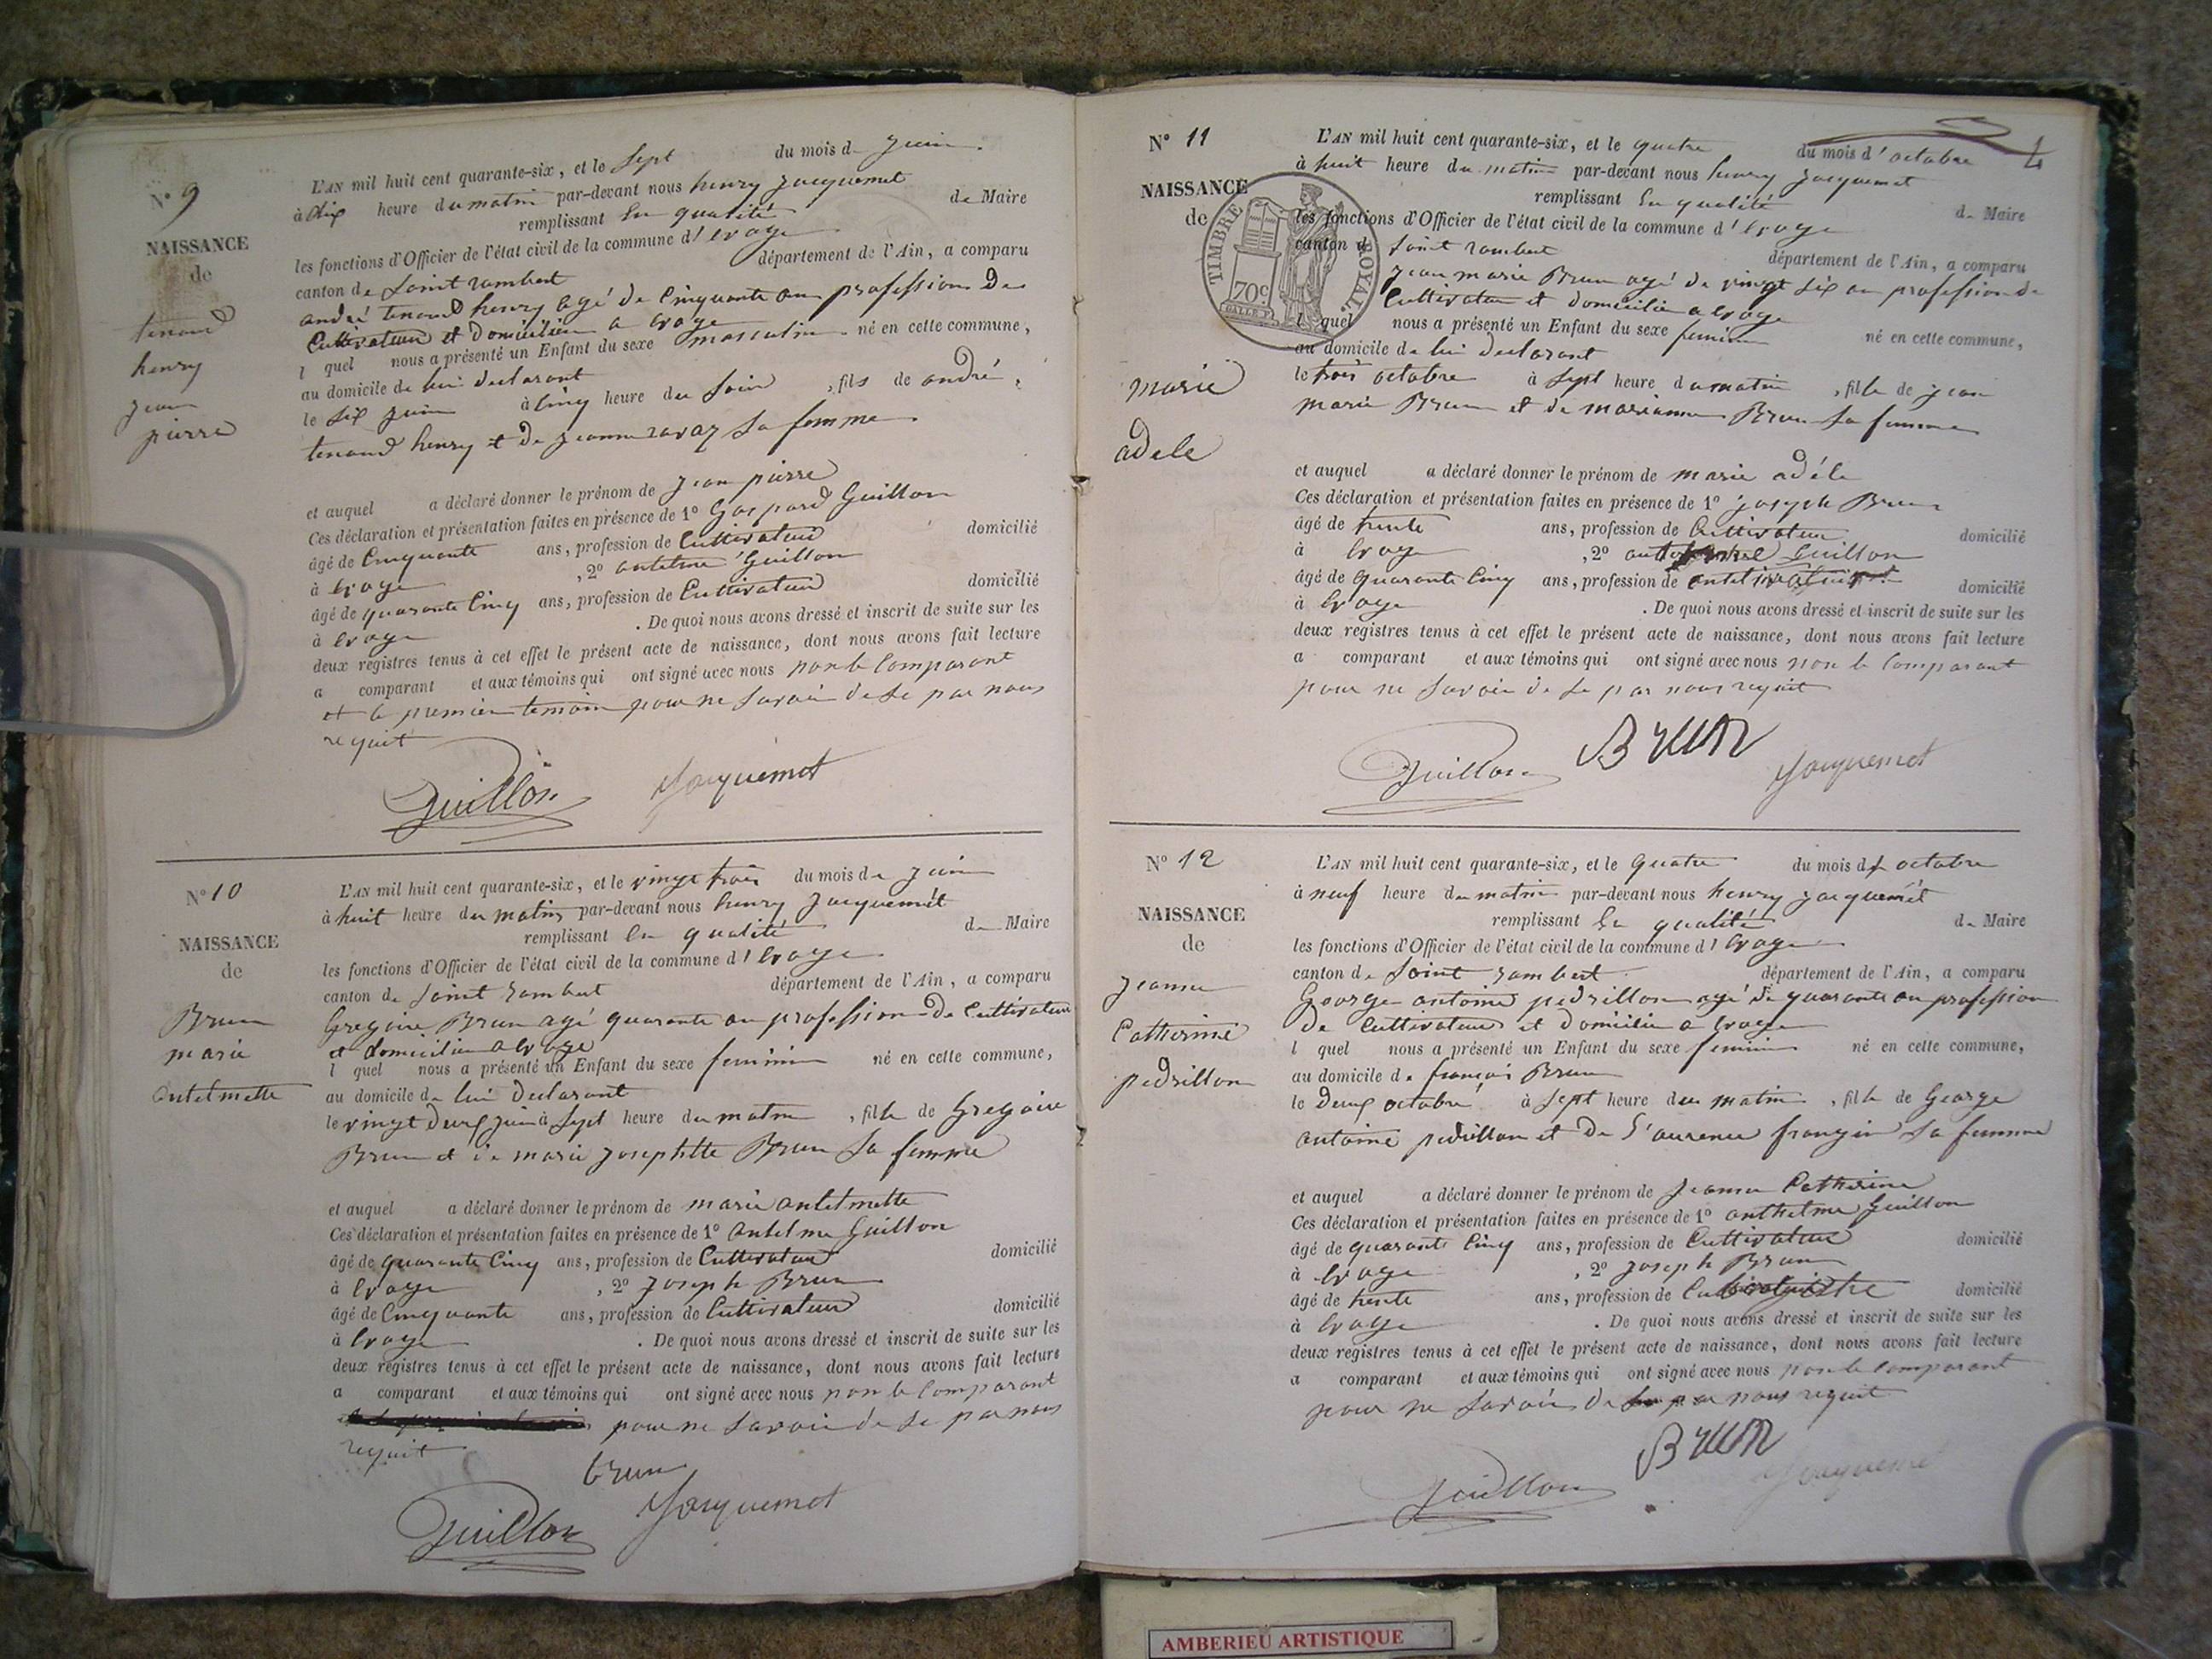 N° 9
NAISSANCE
de
tenand
henry
jean
pierre
L'AN mil huit cent quarante-six, et le Sept du mois d juin
à dix heure du matin par-devant nous henry jacquemet
remplissant En qualité de Maire
les fonctions d'Officier de l'état civil de la commune d'
canton de Saint rambert département de l'Ain, a comparu
andré tenand henry agé de Cinquante an profession de
Cultivateur et domicilier a
l quel nous a présenté un Enfant du sexe masculin né en cette commune,
au domicile de lui declarant
le Six juin à Cinq heure du Soir , fils de andré
tenand henry et de jeanne ravaz Sa femme
et auquel a déclaré donner le prénom de jean pierre
Ces déclaration et présentation faites en présence de 1° Gaspard Guillon
âgé de Cinquante ans, profession de Cultivateur domicilié
à , 2° antelme Guillon
âgé de quarante Cinq ans, profession de Cultivateur domicilié
à . De quoi nous avons dressé et inscrit de suite sur les
deux registres tenus à cet effet le présent acte de naissance, dont nous avons fait lecture
a comparant et aux témoins qui ont signé avec nous non le Comparant
et le premier temoin pour ne Savoir de Se par nous
requit
Guillon Jacquemet
N° 10
NAISSANCE
de
Brun
marie
antelmette
L'AN mil huit cent quarante-six, et le vingt trois du mois de juin
à huit heure du matin par-devant nous henry jacquemet
remplissant En qualité de Maire
les fonctions d'Officier de l'état civil de la commune d'
canton de Saint rambert département de l'Ain, a comparu
Gregoire Brun agé quarante an profession de Cultivateur
et domicilier a
l quel nous a présenté un Enfant du sexe feminin né en cette commune,
au domicile de lui declarant
le vingt deux juin à Sept heure du matin , fille de Gregoire
Brun et de marie josephette Brun Sa femme
et auquel a déclaré donner le prénom de marie antelmette
Ces déclaration et présentation faites en présence de 1° antelme Guillon
âgé de quarante Cinq ans, profession de Cultivateur domicilié
à , 2° joseph Brun
âgé de Cinquante ans, profession de Cultivateur domicilié
à . De quoi nous avons dressé et inscrit de suite sur les
deux registres tenus à cet effet le présent acte de naissance, dont nous avons fait lecture
a comparant et aux témoins qui ont signé avec nous non le Comparant
pour ne Savoir de Se par nous
requit
brun
Guillon Jacquemet
4
N° 11
NAISSANCE
de
marie
adele
TIMBRE ROYAL
70c
L'AN mil huit cent quarante-six, et le quatre du mois d'octobre
à huit heure du matin par-devant nous henry jacquemet
remplissant En qualité de Maire
les fonctions d'Officier de l'état civil de la commune d'
canton d Saint rambert département de l'Ain, a comparu
jean marie Brun agé de vingt Six an profession de
Cultivateur et domicilier a
l quel nous a présenté un Enfant du sexe feminin né en cette commune,
au domicile de lui declarant
le trois octobre à Sept heure du matin , fille de jean
marie Brun et de marianne Brun Sa femme
et auquel a déclaré donner le prénom de marie adéle
Ces déclaration et présentation faites en présence de 1° joseph Brun
âgé de trente ans, profession de Cultivateur domicilié
à , 2° Guillon
âgé de quarante Cinq ans, profession de domicilié
à . De quoi nous avons dressé et inscrit de suite sur les
deux registres tenus à cet effet le présent acte de naissance, dont nous avons fait lecture
a comparant et aux témoins qui ont signé avec nous non le Comparant
pour ne Savoir de Se par nous requit
Guillon BRUN Jacquemet
N° 12
NAISSANCE
de
jeanne
Catherine
pedrillon
L'AN mil huit cent quarante-six, et le Quatre du mois d octobre
à neuf heure du matin par-devant nous henry jacquemet
remplissant En qualité de Maire
les fonctions d'Officier de l'état civil de la commune d'
canton de Saint rambert département de l'Ain, a comparu
George antoine pedrillon agé de quarante an profession
de Cultivateur et domicilier a
l quel nous a présenté un Enfant du sexe feminin né en cette commune,
au domicile de françois Brun
le deux octobre à Sept heure du matin , fille de George
antoine pedrillon et de Sa femme
et auquel a déclaré donner le prénom de jeanne Catherine
Ces déclaration et présentation faites en présence de 1° anthelme Guillon
âgé de quarante Cinq ans, profession de Cultivateur domicilié
à , 2° joseph Brun
âgé de trente ans, profession de domicilié
à . De quoi nous avons dressé et inscrit de suite sur les
deux registres tenus à cet effet le présent acte de naissance, dont nous avons fait lecture
a comparant et aux témoins qui ont signé avec nous non le Comparant
pour ne Savoir de par nous requit
Guillon BRUN Jacquemet
AMBERIEU ARTISTIQUE